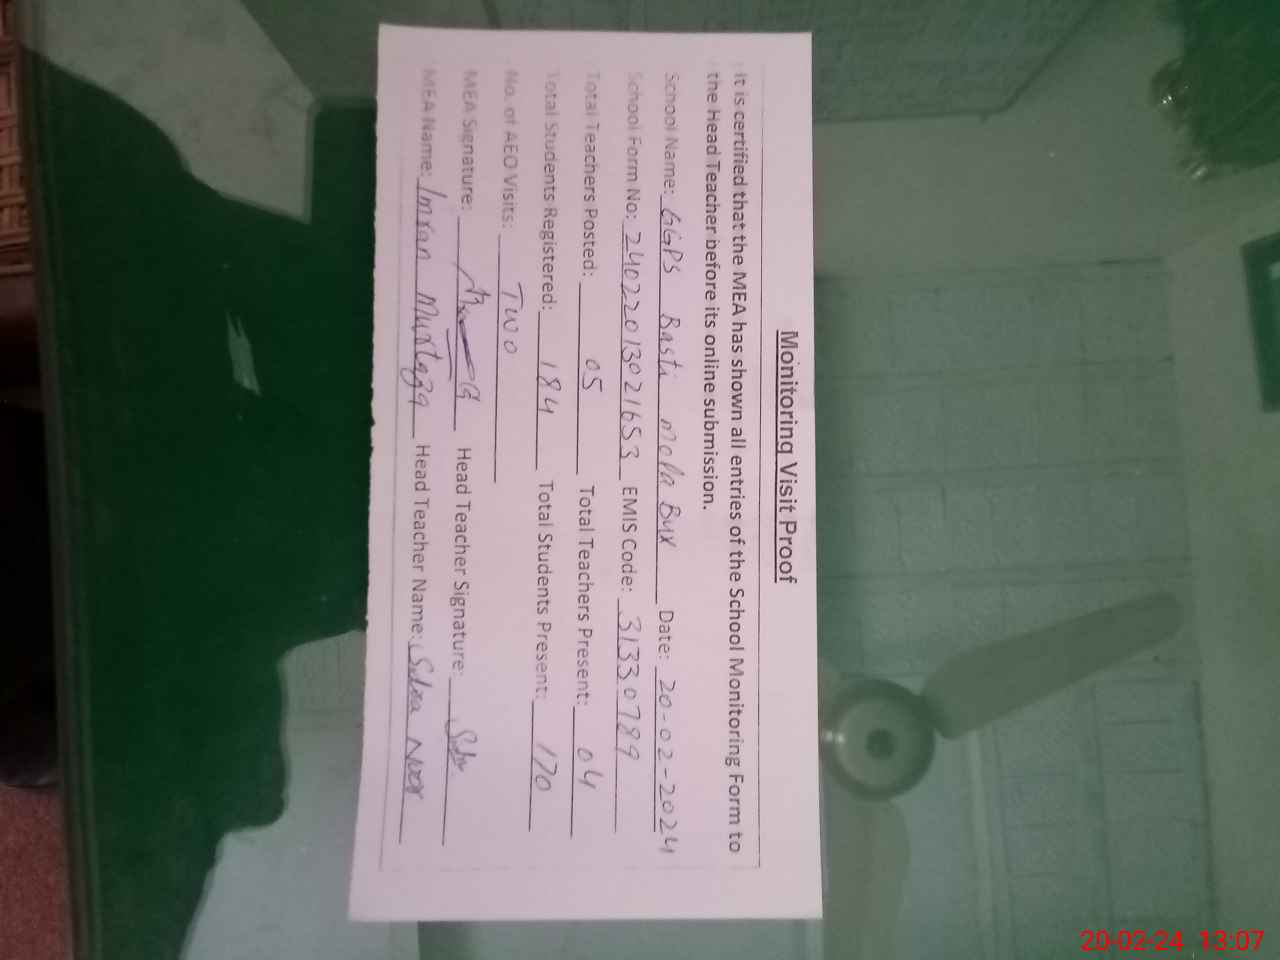 Monitoring Visit Proof
It is certified that the MEA has shown all entries of the School Monitoring Form to
the Head Teacher before its online submission.
School Name: GGPS Basti Mola Bux Date: 20-02-2024
School Form No: 24022013021653 EMIS Code: 31330789
Total Teachers Posted: 05 Total Teachers Present: 04
Total Students Registered: 184 Total Students Present: 170
No. of AEO Visits: Two
MEA Signature: Head Teacher Signature:
MEA Name: Imran Murtaza Head Teacher Name: Noor
20-02-24 13:07